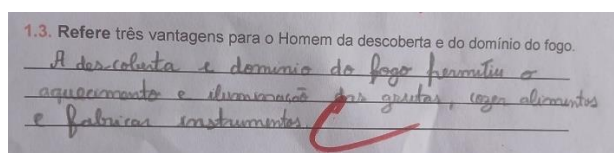 1.3. Refere três vantagens para o Homem da descoberta e do domínio do fogo.
A descoberta e dominio do fogo permitiu o
aquecimento e iluminação das grutas, cozer alimentos
e fabricar instrumentos.